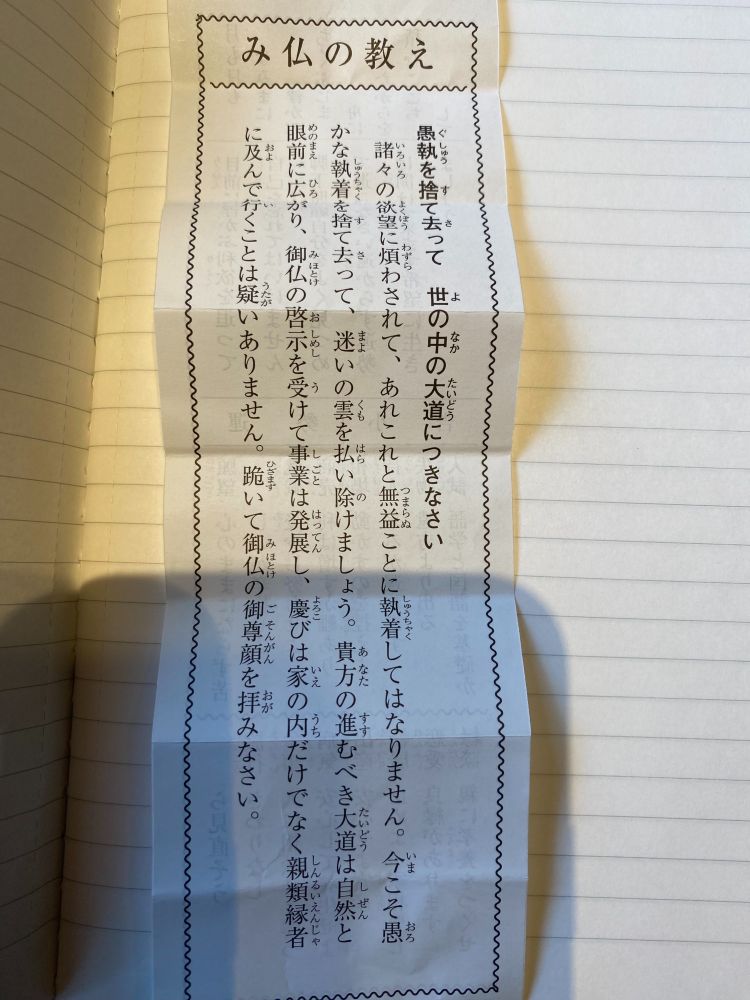 み仏の教え
愚執を捨て去って　世の中の大道につきなさい
諸々の欲望に煩わされて、あれこれと無益ことに執着してはなりません。今こそ愚
かな執着を捨て去って、迷いの雲を払い除けましょう。貴方の進むべき大道は自然と
眼前に広がり、御仏の啓示を受けて事業は発展し、慶びは家の内だけでなく親類縁者
に及んで行くことは疑いありません。跪いて御仏の御尊顔を拝みなさい。